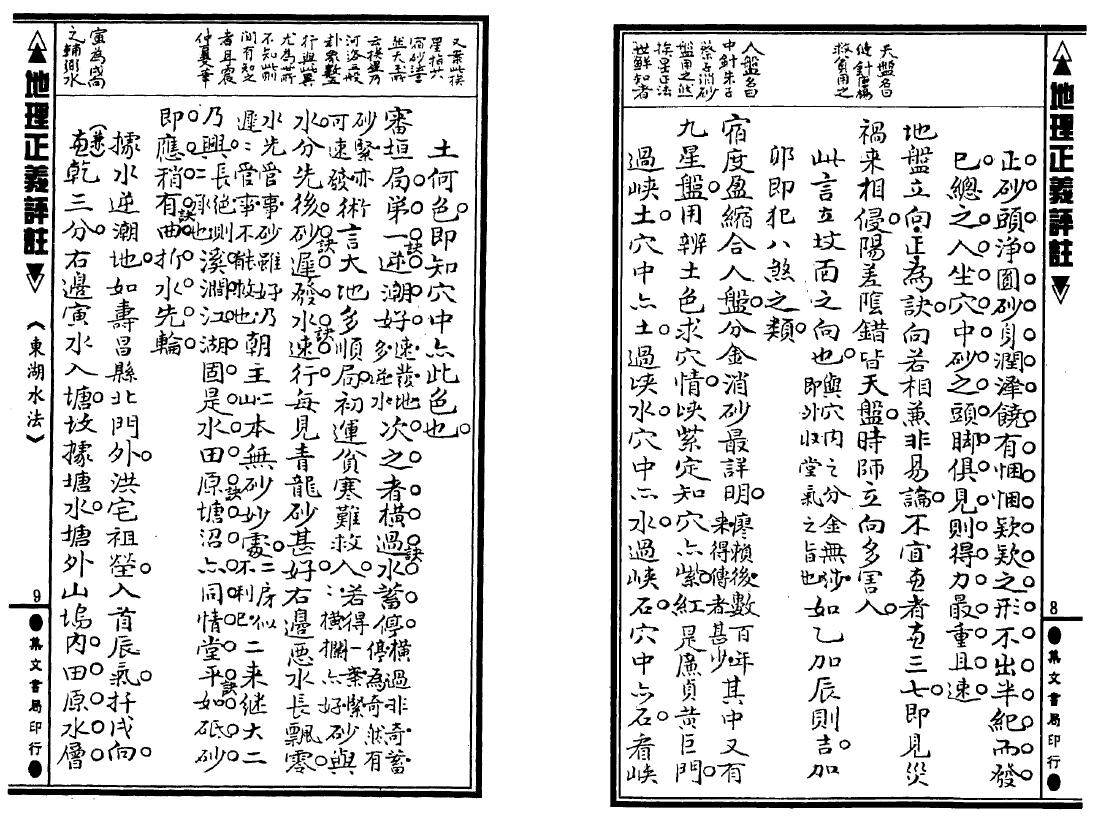 地理正義評註
8
集文書局印行
天盤名曰
縫針楊
救貧用之
人盤名曰
中針朱子
蔡子消砂
盤用之然
挨星正法
世鮮知者
正砂頭淨圓砂身潤澤饒有悃悃欵欵之形不出半紀而發
已總之入坐穴中砂之頭腳俱見則得力最重且速
地盤立向正為訣向若相兼非易論不宜兼者兼三七即見災
禍來相侵陽差陰錯皆天盤時師立向多害人
此言立坟面之向也與穴內之分金無涉即外收堂氣之旨也如乙加辰則吉加
卯即犯八煞之類
宿度盈縮合人盤分金消砂最詳明廖賴後數百年其中又有來得傳者甚少
九星盤用辨土色求穴情峽紫定知穴亦紫紅是廉貞黃巨門
過峽土穴中亦土過峽水穴中亦水過峽石穴中亦石看峽
地理正義評註
《東湖水法》
9
集文書局印行
又業挨
星指共
宿砂善
然大壽
云挨邊乃
河洛五般
卦象蟹
行與此異
尤為世所
不知此前
間有知之
者耳震
仲夏華
寅為戌局
之輔卿水
土何色即知穴中亦此色也
審垣局第一逆潮好多逆水速發地次之者橫過水蓄停橫過非奇蓄停為奇然有
砂緊亦可速發術言大地多順局初運貧寒難救人若得一葉緊砂與橫攔亦好
水分先後砂遲發水速行每見青龍砂甚好右邊惡水長飄零
水先管事砂雖好乃遲遲管事不能救也朝主山二本無砂妙處二房似不利已二來繼大二
乃興長絕則二承也溪澗江湖固是水田原塘沼亦同情堂平如砥砂
即應稍有曲折水先輪
據水逆潮地如壽昌縣北門外洪宅祖塋入首辰氣扦戌向
兼乾三分右邊寅水入塘坟據塘水塘外山塢內田原水層